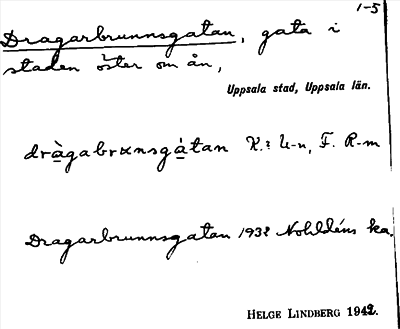 1-5
Dragarbrunnsgatan, gata i
staden öster om ån,
Uppsala stad, Uppsala län.
dràgabrunsgátan K.: U-n, F. R-m
Dragarbrunnsgatan 1932 Nohldéns ka.
HELGE LINDBERG 1942.